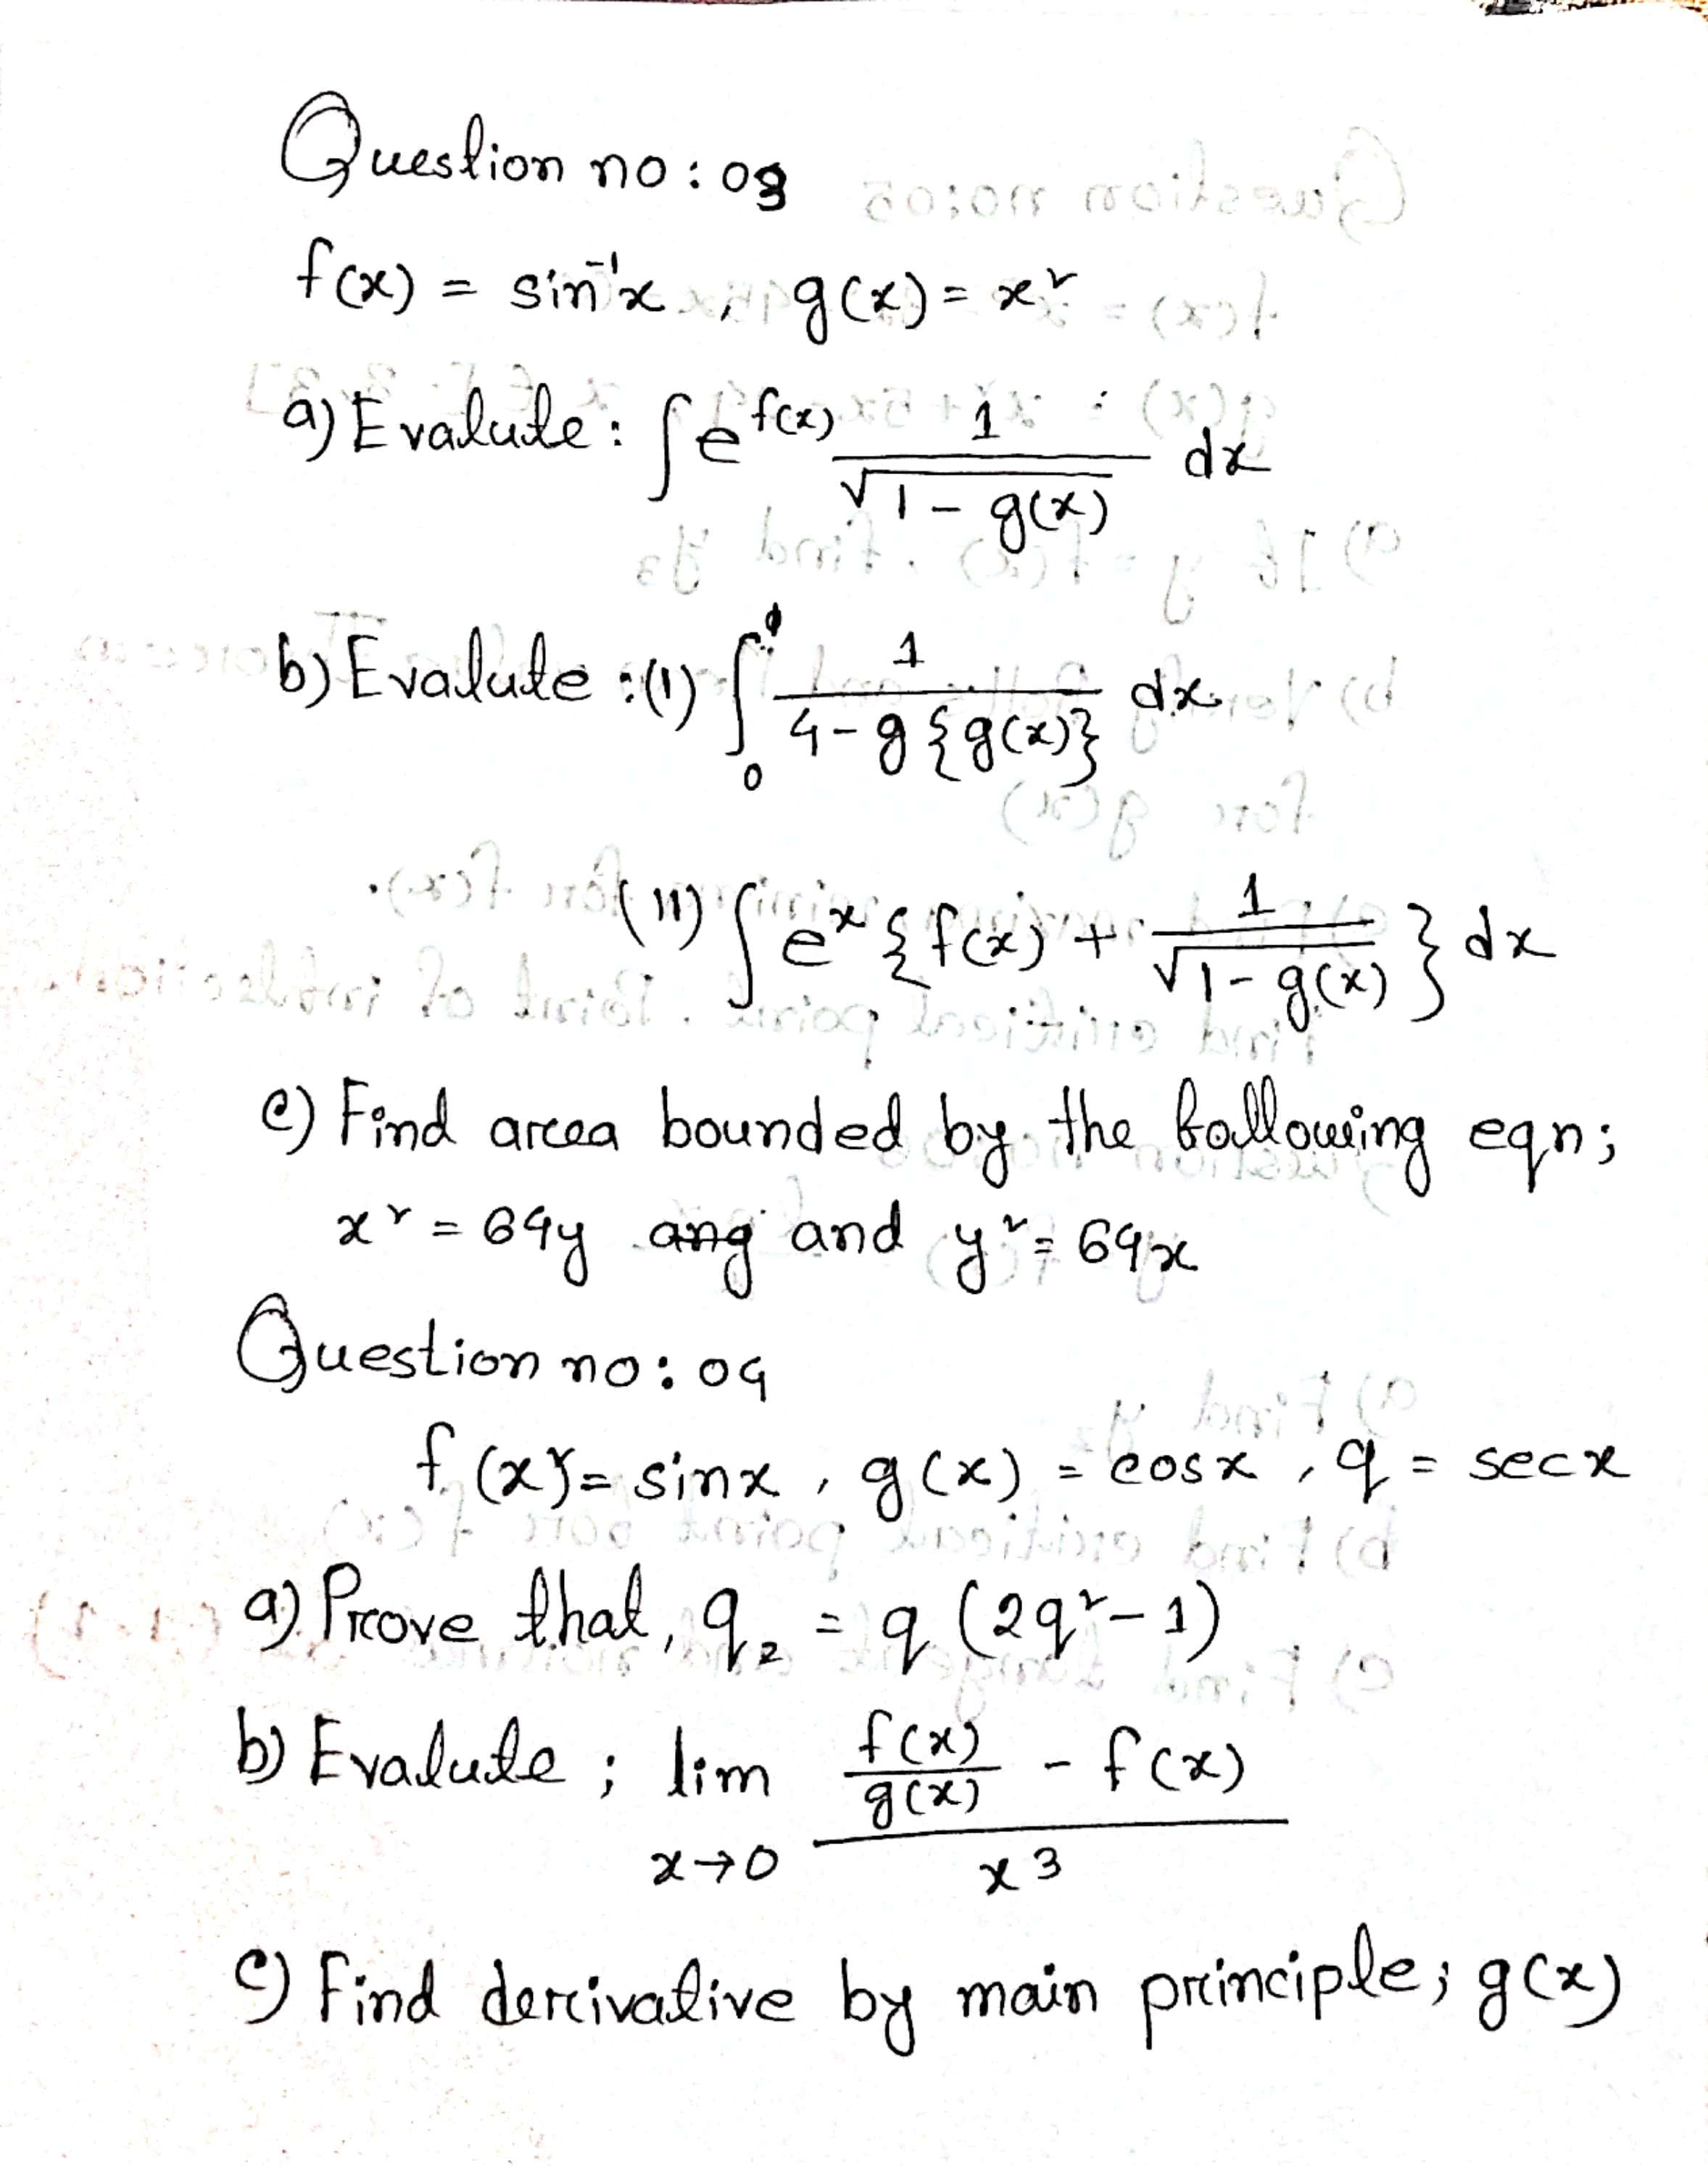 Question no: 03
f(x) = sin⁻¹x , g(x) = x²
a) Evalute: ∫ e^f(x) 1/√(1 - g(x)) dx
b) Evalute :(I) ∫₀¹ 1/(4 - g{g(x)}) dx
(II) ∫ e^x {f(x) + 1/√(1 - g(x))} dx
c) Find area bounded by the following eqn;
x² = 64y ang and y² = 64x
Question no: 04
f(x) = sinx , g(x) = cosx , q = secx
a) Prove that, q₂ = q (2q² - 1)
b) Evalute ; lim x→0 (f(x)/g(x) - f(x))/x³
c) Find derivative by main principle; g(x)